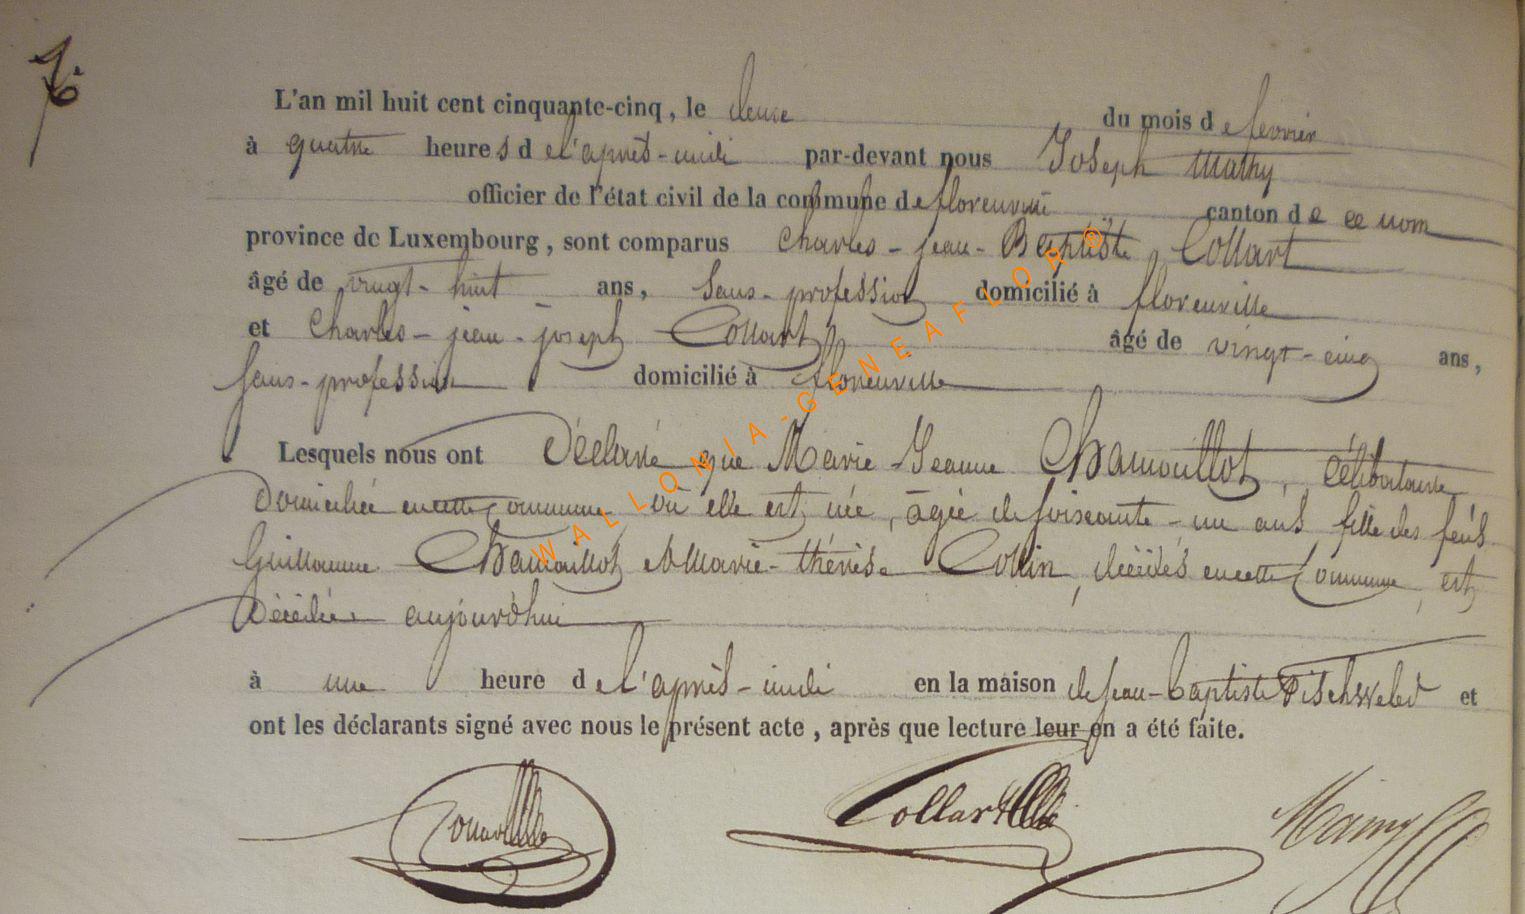 7.
L'an mil huit cent cinquante-cinq, le deux du mois de fevrier
à quatre heures de l'après-midi par-devant nous Joseph Mathy
officier de l'état civil de la commune de florenville canton de ce nom
province de Luxembourg, sont comparus Charles-jean-Baptiste Collart
âgé de vingt-huit ans, Sans-profession domicilié à florenville
et Charles-jean-joseph Collart âgé de vingt-cinq ans,
Sans-profession domicilié à florenville
Lesquels nous ont Déclaré que Marie-Jeanne Chamouillot, célibataire
Domiciliée en cette Commune où elle est née, agée de soixante-un ans fille des feus
Guillaume Chamouillot et Marie-thérèse Collin, décédés en cette Commune, est
Décédée aujourd'hui
à une heure de l'après-midi en la maison de jean-baptiste et
ont les déclarants signé avec nous le présent acte, après que lecture leur en a été faite.
Collart Mathy
WALLONIA-GENEAFLOR ©